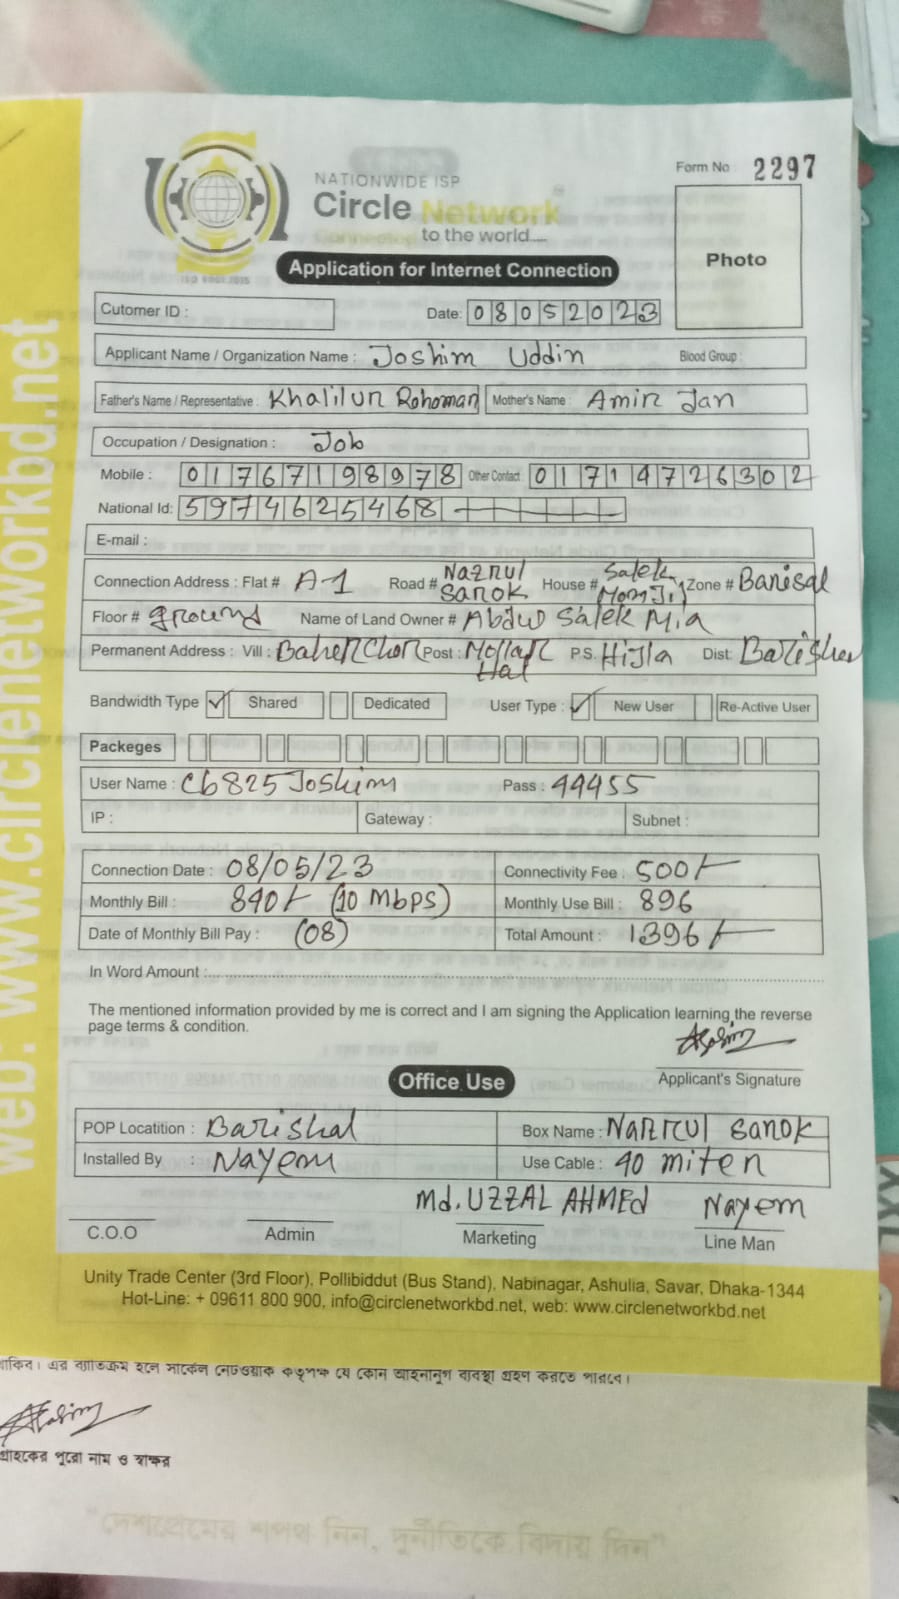 Form No 2297
NATIONWIDE ISP
Circle Network
to the world....
ISO 9001:2015
Photo
Application for Internet Connection
Cutomer ID :
Date: 08052023
Applicant Name / Organization Name : Joshim Uddin Blood Group :
Father's Name / Representative : Khalilur Rohoman Mother's Name : Amir Jan
Occupation / Designation : Job
Mobile : 01767198978 Other Contact 01714726302
National Id: 5974625468
E-mail :
Connection Address : Flat # A-1 Road # Nazrul Sarok House # Salek Monjil Zone # Barisal
Floor # ground Name of Land Owner # Abdul Salek Mia
Permanent Address : Vill : Baherchor Post : Mollar Hat P.S. Hijla Dist: Barishal
Bandwidth Type ✓ Shared Dedicated User Type : ✓ New User Re-Active User
Packeges
User Name : Cb825Joshim Pass : 44455
IP : Gateway : Subnet :
Connection Date : 08/05/23 Connectivity Fee : 500/-
Monthly Bill : 840/- (10 Mbps) Monthly Use Bill : 896
Date of Monthly Bill Pay : (08) Total Amount : 1396/-
In Word Amount :
The mentioned information provided by me is correct and I am signing the Application learning the reverse
page terms & condition.
Applicant's Signature
Office Use
POP Locatition : Barishal Box Name : Nazrul Sarok
Installed By : Nayem Use Cable : 40 miter
Md. UZZAL AHMED Nayem
C.O.O Admin Marketing Line Man
Unity Trade Center (3rd Floor), Pollibiddut (Bus Stand), Nabinagar, Ashulia, Savar, Dhaka-1344
Hot-Line: + 09611 800 900, info@circlenetworkbd.net, web: www.circlenetworkbd.net
web: www.circlenetworkbd.net
থাকিব। এর ব্যাতিক্রম হলে সার্কেল নেটওয়ার্ক কতৃপক্ষ যে কোন আইনানুগ ব্যবস্থা গ্রহণ করতে পারবে।
গ্রাহকের পুরো নাম ও স্বাক্ষর
"দেশপ্রেমের শপথ নিন, দুর্নীতিকে বিদায় দিন"